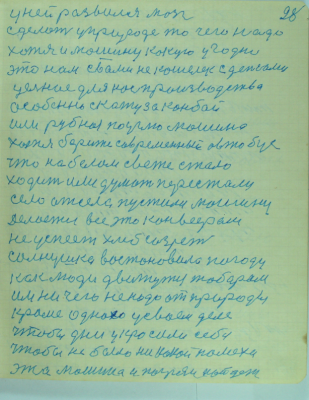 28
у ней развился мозг
сделат у природе то чего надо
хотя и машину какую угодно
это нам стали не кошелек с деньгами
ценные для нас производства
особенно скату за канбай
или рубная почему машина
хотя берит современный автобус
что на белом свете стало
ходит или думат перестали
село от села пустили машину
делается все это конвеерам
не успеет хлеб созреть
солнушка востановила погоду
как люди движутся товарам
им ни чего не надо от природы
кроме одного у своем деле
чтобы дни украсили себя
чтобы не было ни какой помехи
эта машина и